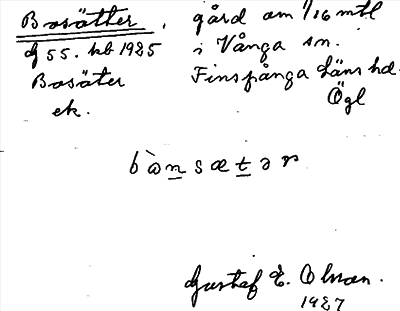 Bosätter, gård om 1/16 mtl
dj 55. kb 1925 i Vånga sn.
Bosäter Finspånga läns hd.
ek. Ögl
bònsætər
Gustaf E. Olsson.
1927